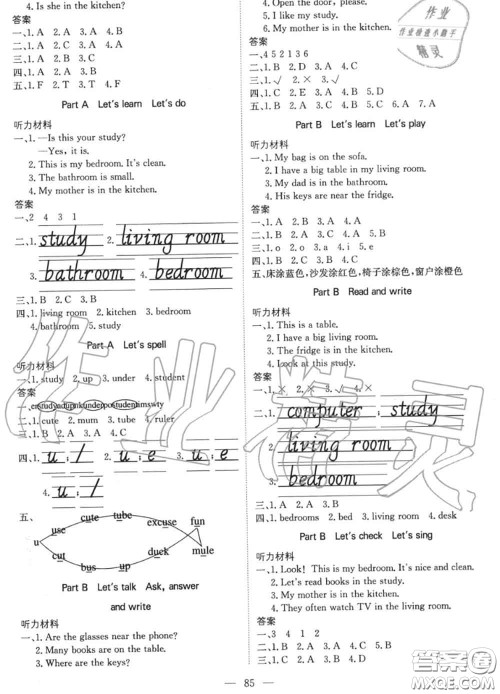 4. Is she in the kitchen?
答案
一、1. A 2. A 3. A 4. A
二、1. B 2. C 3. B 4. C 5. A
三、1. C 2. B 3. A 4. B
四、1. A 2. A 3. A 4. B
五、1. T 2. F 3. F 4. T 5. F
Part A Let's learn Let's do
听力材料
一、1. —Is this your study?
—Yes, it is.
2. This is my bedroom. It's clean.
3. The bathroom is small.
4. My mother is in the kitchen.
答案
一、2 4 3 1
二、1. study 2. living room
3. bathroom 4. bedroom
三、1. B 2. C 3. B
四、1. living room 2. kitchen 3. bedroom
4. bathroom 5. study
Part A Let's spell
听力材料
一、1. study 2. up 3. under 4. student
答案
二、1. cute 2. mum 3. tube 4. ruler
三、1. B 2. A 3. A 4. B 5. C
四、1. u / 2. u e 3. u e
4. u /
五、
u use cute tube excuse fun
cut bus up duck mule
Part B Let's talk Ask, answer
and write
听力材料
一、1. Are the glasses near the phone?
2. Many books are on the table.
3. Where are the keys?
4. Open the door, please.
5. I like my study.
6. My mother is in the kitchen.
答案
一、4 5 2 1 3 6
二、1. B 2. A 3. B 4. A
三、1. √ 2. × 3. √
四、1. C 2. E 3. A 4. B 5. D
五、1. C 2. A 3. B
Part B Let's learn Let's play
听力材料
一、1. My bag is on the sofa.
2. I have a big table in my living room.
3. My dad is in the bathroom.
4. His keys are near the fridge.
答案
一、1. A 2. B 3. A 4. A
二、1. o 2. e 3. a 4. i 5. e
三、1. A 2. B 3. B
四、1. B 2. C 3. A 4. D
五、床涂蓝色,沙发涂红色,椅子涂棕色,窗户涂橙色
Part B Read and write
听力材料
一、1. This is a table.
2. I have a big living room.
3. The fridge is in the kitchen.
4. Look at this study.
答案
一、1. × 2. × 3. √ 4. √
二、1. computer study
2. living room
3. bedroom
三、1. A 2. A 3. B
四、1. bedrooms 2. bed 3. living room 4. desk
Part B Let's check Let's sing
听力材料
一、1. Look! This is my bedroom. It's nice and clean.
2. Let's read books in the study.
3. My mother is in the kitchen.
4. They often watch TV in the living room.
答案
一、3 4 1 2
二、1. A 2. B 3. A 4. C 5. B
三、1. B 2. A 3. A 4. C
四、1. C 2. A 3. D
85
作业
作业检查小助手
精灵
作业精灵